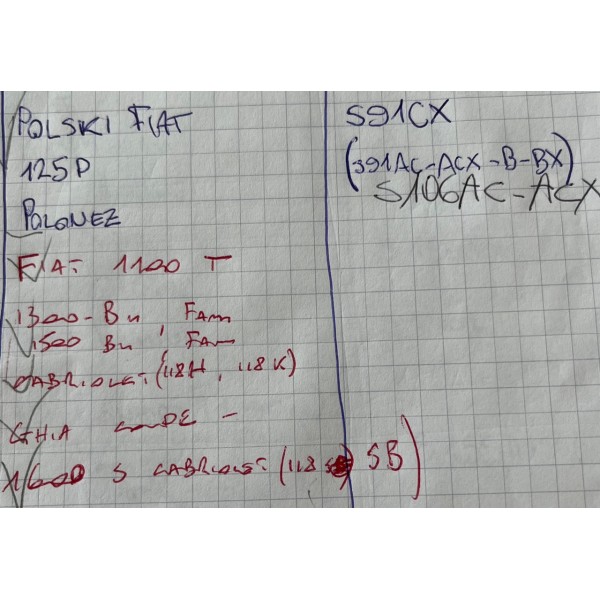 POLSKI FIAT
125P
POLONEZ
FIAT 1100 T
1300 - Bn, FAm
1500 Bn FAm
CABRIOLET (118H, 118K)
GHIA COUPE -
1600 S CABRIOLET (118 SB)
S91CX
(S91AC-ACX-B-BX)
S106AC-ACX